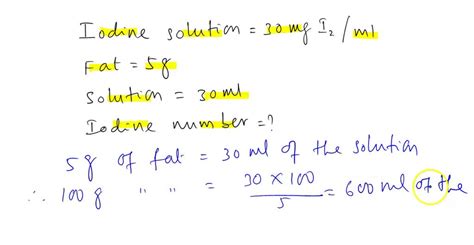 Iodine solution = 30 mg I₂ / ml
Fat = 5g
Solution = 30 ml
Iodine number = ?
5g of fat = 30 ml of the solution
∴ 100 g " " = 30 × 100 / 5 = 600 ml of the